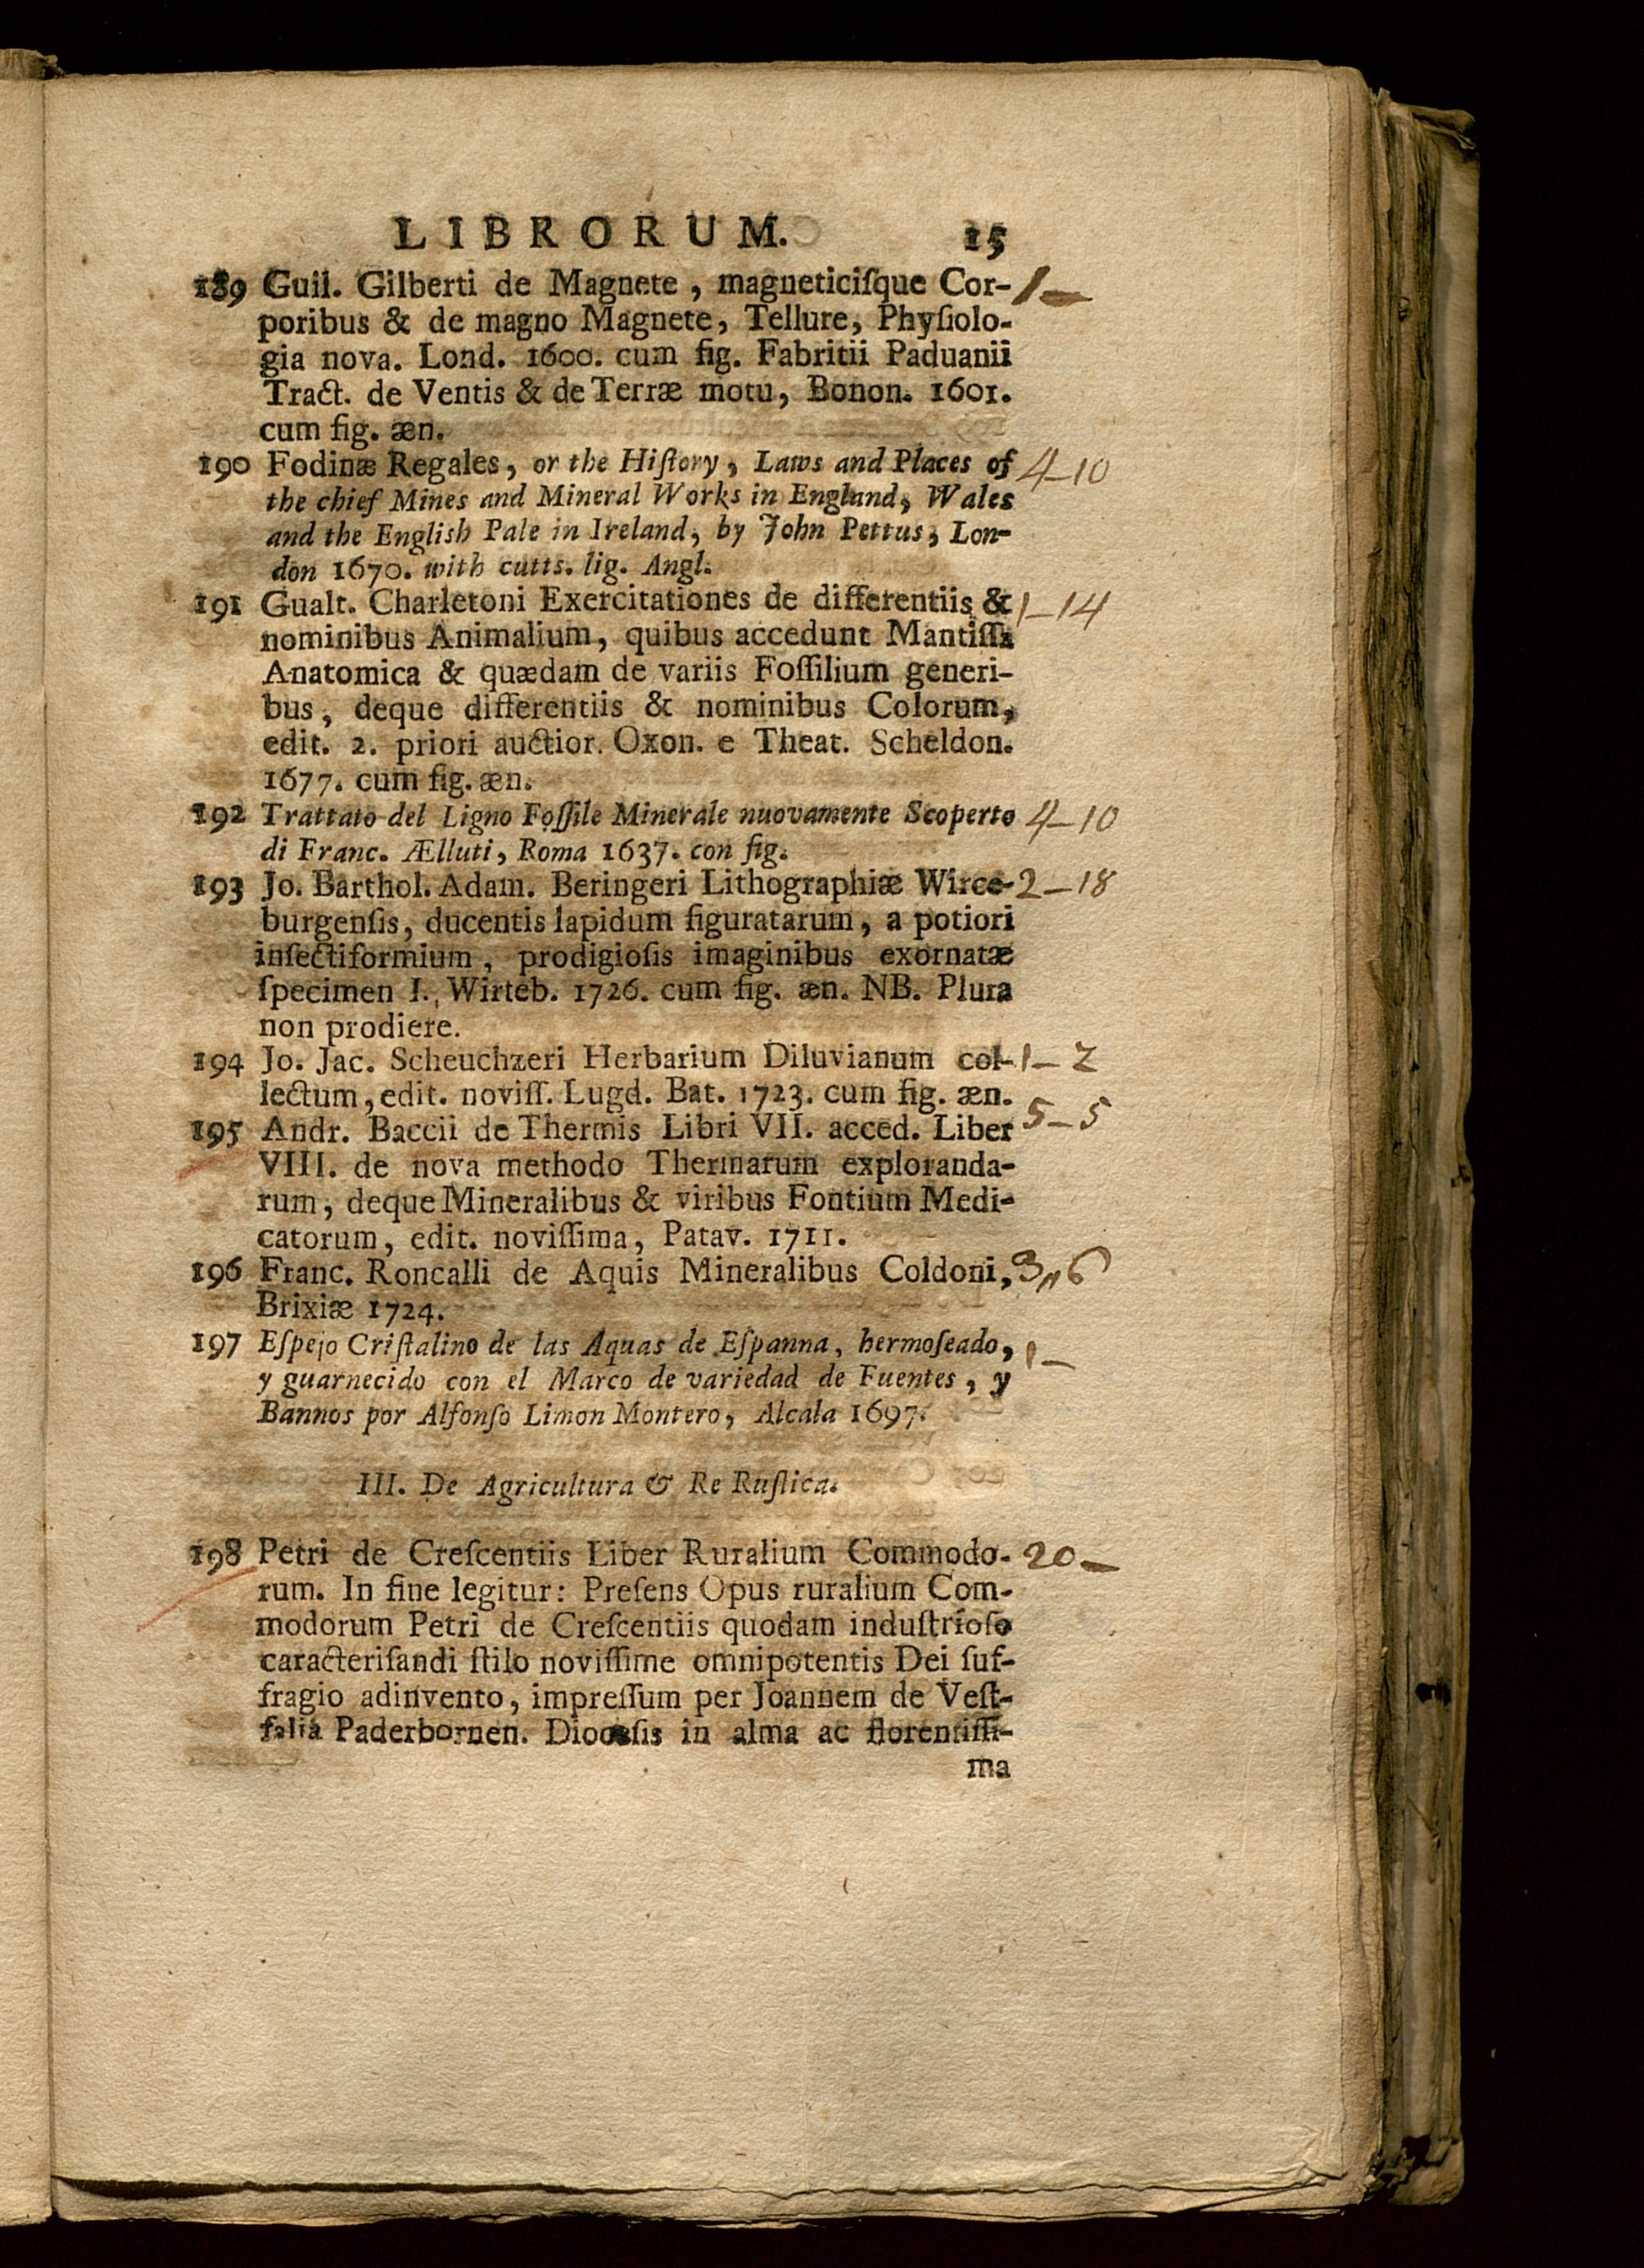 LIBRORUM. 15
189 Guil. Gilberti de Magnete, magneticiſque Cor- 1—
poribus & de magno Magnete, Tellure, Phyſiolo-
gia nova. Lond. 1600. cum fig. Fabritii Paduanii
Tract. de Ventis & de Terræ motu, Bonon. 1601.
cum fig. æn.
190 Fodinæ Regales, or the Hiſtory, Laws and Places of 4—10
the chief Mines and Mineral Works in England, Wales
and the English Pale in Ireland, by John Pettus, Lon-
don 1670. with cutts. lig. Angl.
191 Gualt. Charletoni Exercitationes de differentiis & 1—14
nominibus Animalium, quibus accedunt Mantiſſa
Anatomica & quædam de variis Foſſilium generi-
bus, deque differentiis & nominibus Colorum,
edit. 2. priori auctior. Oxon. e Theat. Scheldon.
1677. cum fig. æn.
192 Trattato del Ligno Foſſile Minerale nuovamente Scoperto 4—10
di Franc. Ælluti, Roma 1637. con fig.
193 Jo. Barthol. Adam. Beringeri Lithographiæ Wirce- 2—18
burgenſis, ducentis lapidum figuratarum, a potiori
inſectiformium, prodigioſis imaginibus exornatæ
ſpecimen I., Wirteb. 1726. cum fig. æn. NB. Plura
non prodiere.
194 Jo. Jac. Scheuchzeri Herbarium Diluvianum col- 1—2
lectum, edit. noviſſ. Lugd. Bat. 1723. cum fig. æn.
195 Andr. Baccii de Thermis Libri VII. acced. Liber 5—5
VIII. de nova methodo Thermarum exploranda-
rum, deque Mineralibus & viribus Fontium Medi-
catorum, edit. noviſſima, Patav. 1711.
196 Franc. Roncalli de Aquis Mineralibus Coldoni, 3„6
Brixiæ 1724.
197 Eſpejo Criſtalino de las Aquas de Eſpanna, hermoſeado, 1—
y guarnecido con el Marco de variedad de Fuentes, y
Bannos por Alfonſo Limon Montero, Alcala 1697.
III. De Agricultura & Re Ruſtica.
198 Petri de Creſcentiis Liber Ruralium Commodo- 20—
rum. In fine legitur: Preſens Opus ruralium Com-
modorum Petri de Creſcentiis quodam induſtrioſo
caracteriſandi ſtilo noviſſime omnipotentis Dei ſuf-
fragio adinvento, impreſſum per Joannem de Veſt-
falia Paderbornen. Dioceſis in alma ac florentiſſi-
ma